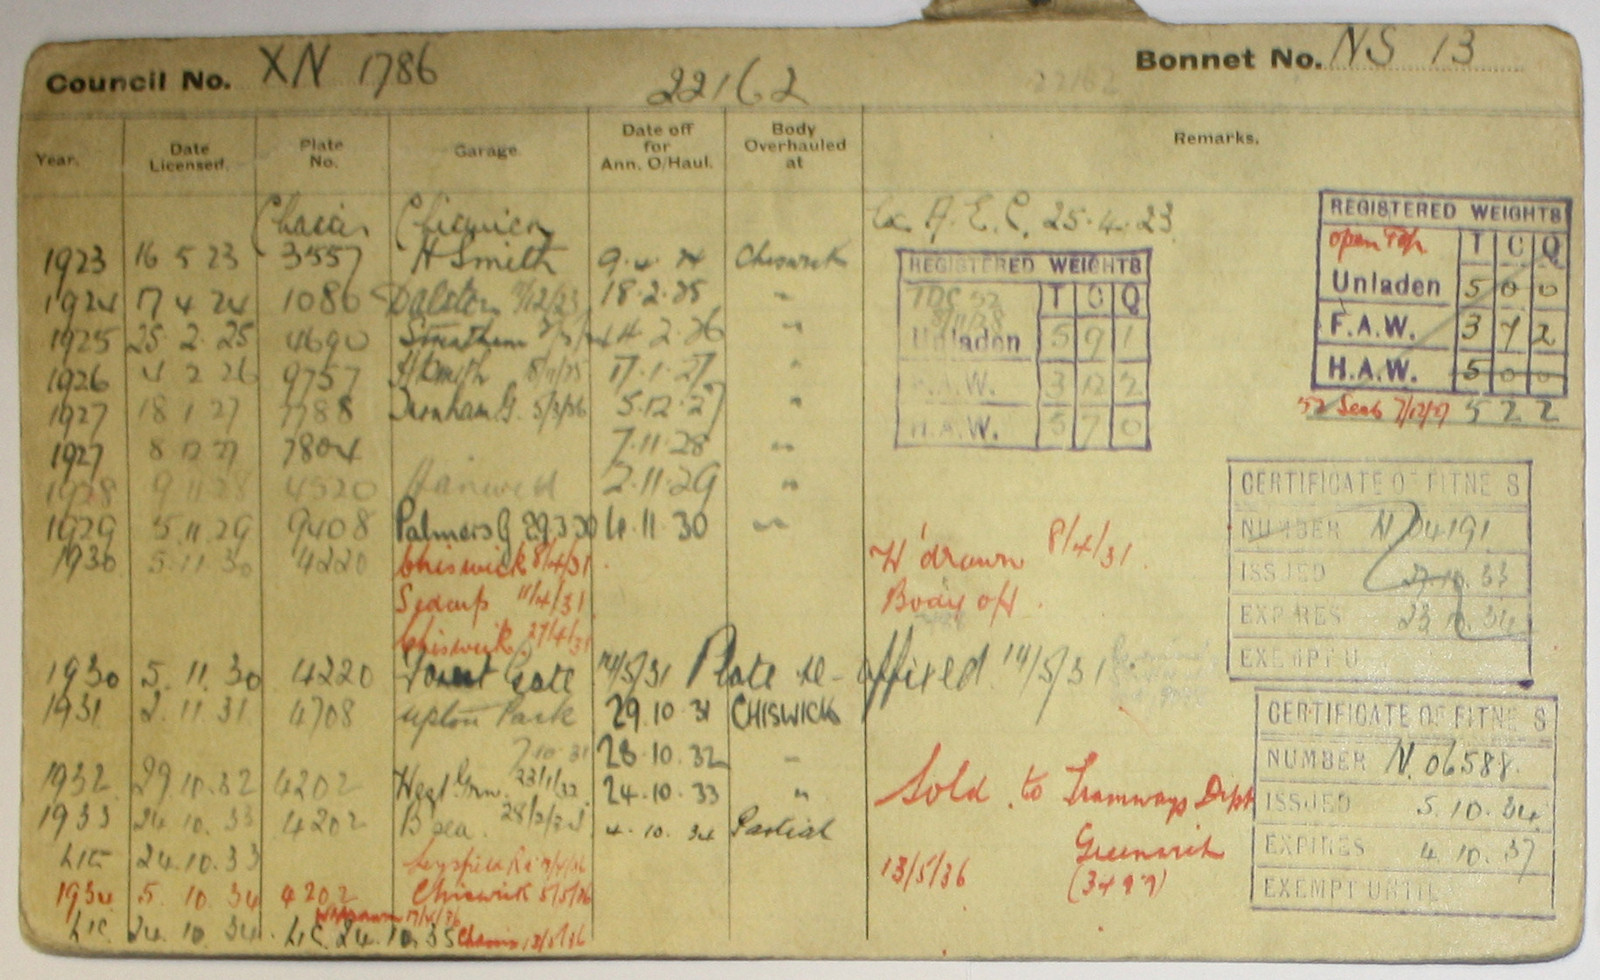 Council No. XN 1786
22162
Bonnet No. NS 13
Year.
Date Licensed.
Plate No.
Garage.
Date off for Ann. O/Haul.
Body Overhauled at
Remarks.
Chassis Chiswick Ex A.E.C. 25.4.23
1923 16 5 23 3557 H Smith 9.4.24 Chiswick
1924 17 4 24 1086 Dalston 11/12/23 18.2.25 "
1925 25.2.25 4690 Streatham 14.2.26 "
1926 4 2 26 9757 H Smith 17.1.27 "
1927 18 1 27 7788 Turnham G. 5/3/26 5.12.27 "
1927 8 12 27 7804 7.11.28 "
1928 9 11 28 4520 Hanwell 2.11.29 "
1929 5 11 29 9408 Palmers G 29.3.30 4.11.30 "
1930 5.11.30 4220 Chiswick 8/4/31 W'drawn 8/4/31.
Sidcup 11/4/31 Body off.
Chiswick. 27/4/31
1930 5.11.30 4220 Forest Gate 14/5/31 Plate re-affixed 14/5/31
1931 2.11.31 4708 Upton Park 29.10.31 CHISWICK
7.10.31 28.10.32 "
1932 29.10.32 4202 West Grn. 24.10.33 "
1933 24.10.33 4202 B'sea. 4.10.34 Partial
Lic 24.10.33
1934 5.10.34 4202 Chiswick 5/5/36
Withdrawn
Lic 24.10.34. Lic 24.10.35 Chassis 13/5/36
Sold to Tramways Dept
Greenwich
13/5/36
REGISTERED WEIGHTS
TDC 52
8/11/28
T C Q
Unladen 5 9 1
F.A.W. 3 12 2
H.A.W. 5 7 0
REGISTERED WEIGHTS
open Top T C Q
Unladen 5 0 0
F.A.W. 3 7 2
H.A.W. 5 0 0
52 Seats 7/12/27 5 2 2
CERTIFICATE OF FITNE S
NUMBER N 04191
ISSUED 10.33
EXPIRES 23.10.34
EXEMPT U
CERTIFICATE OF FITNE S
NUMBER N. 06588.
ISSUED 5.10.34
EXPIRES 4.10.37
EXEMPT UNTIL